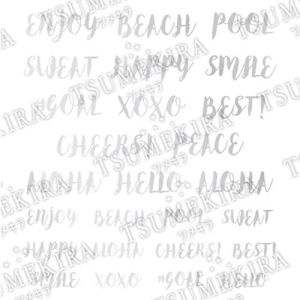 ENJOY BEACH POOL
SWEAT HAPPY SMILE
#GOAL XOXO BEST!
CHEERS! PEACE
ALOHA HELLO ALOHA
ENJOY BEACH POOL SWEAT
HAPPY ALOHA CHEERS! BEST!
SMILE XOXO #GOAL HELLO
TSUMEKIRA